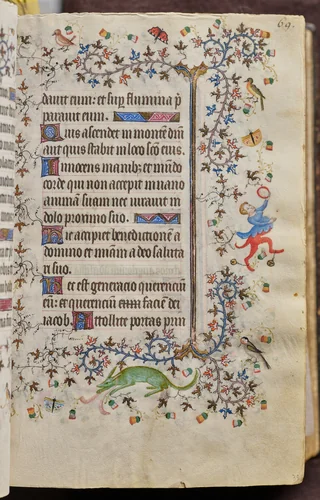 69.
dauit eum: et sup flumina p
parauit eum.
Quis ascendet in montem dnī
aut quis stabit in loco scō eius.
Innocens manib; et mūdo
corde qui non accepit in uano
animā suam nec iurauit in
dolo proximo suo.
Hic accipiet benedictionē a
domino et miām a deo saluta
ri suo.
Hec est generacio querenciū
eū: et querenciū faciē dei
iacob. Attollite portas prin